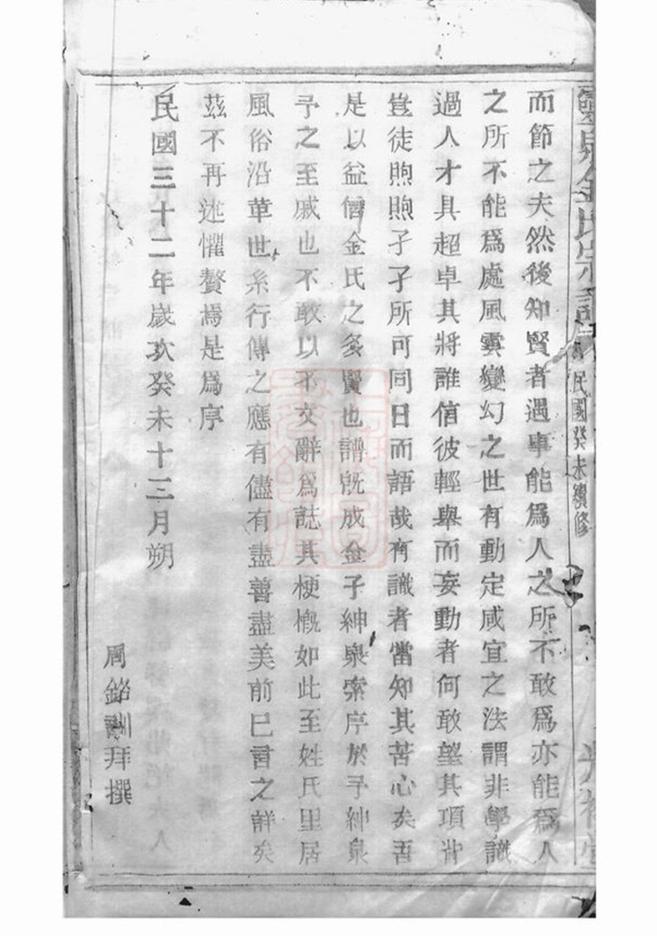 靈泉金氏宗譜
民國癸未續修
而節之夫然後知賢者遇事能爲人之所不敢爲亦能爲人
之所不能爲處風雲變幻之世有動定咸宜之法謂非學識
過人才具超卓其將誰信彼輕舉而妄動者何敢望其項背
豈徒煦煦孑孑所可同日而語哉有識者當知其苦心矣吾
是以益信金氏之多賢也譜旣成金子紳泉索序於予紳泉
予之至戚也不敢以不文辭爲誌其梗槪如此至姓氏里居
風俗沿革世系行傳之應有儘有盡善盡美前已言之詳矣
茲不再述懼贅焉是爲序
民國三十二年歲次癸未十二月朔
周銘訓拜撰